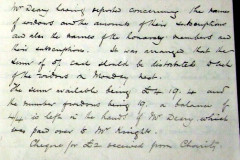 Mr Deary having reported concerning the names
of widows and the amounts of their subscriptions
and also the names of the honorary members and
their subscriptions. It was arranged that the
sum of 5/- each should be distributed
the widows on Monday next.
The sum available being £4.19.4 and
the number of widows being 19, a balance of
4/4 is left in the hands of Mr Deary which
was paid over to Mr Knights.
Cheque for £2 received from Charity.